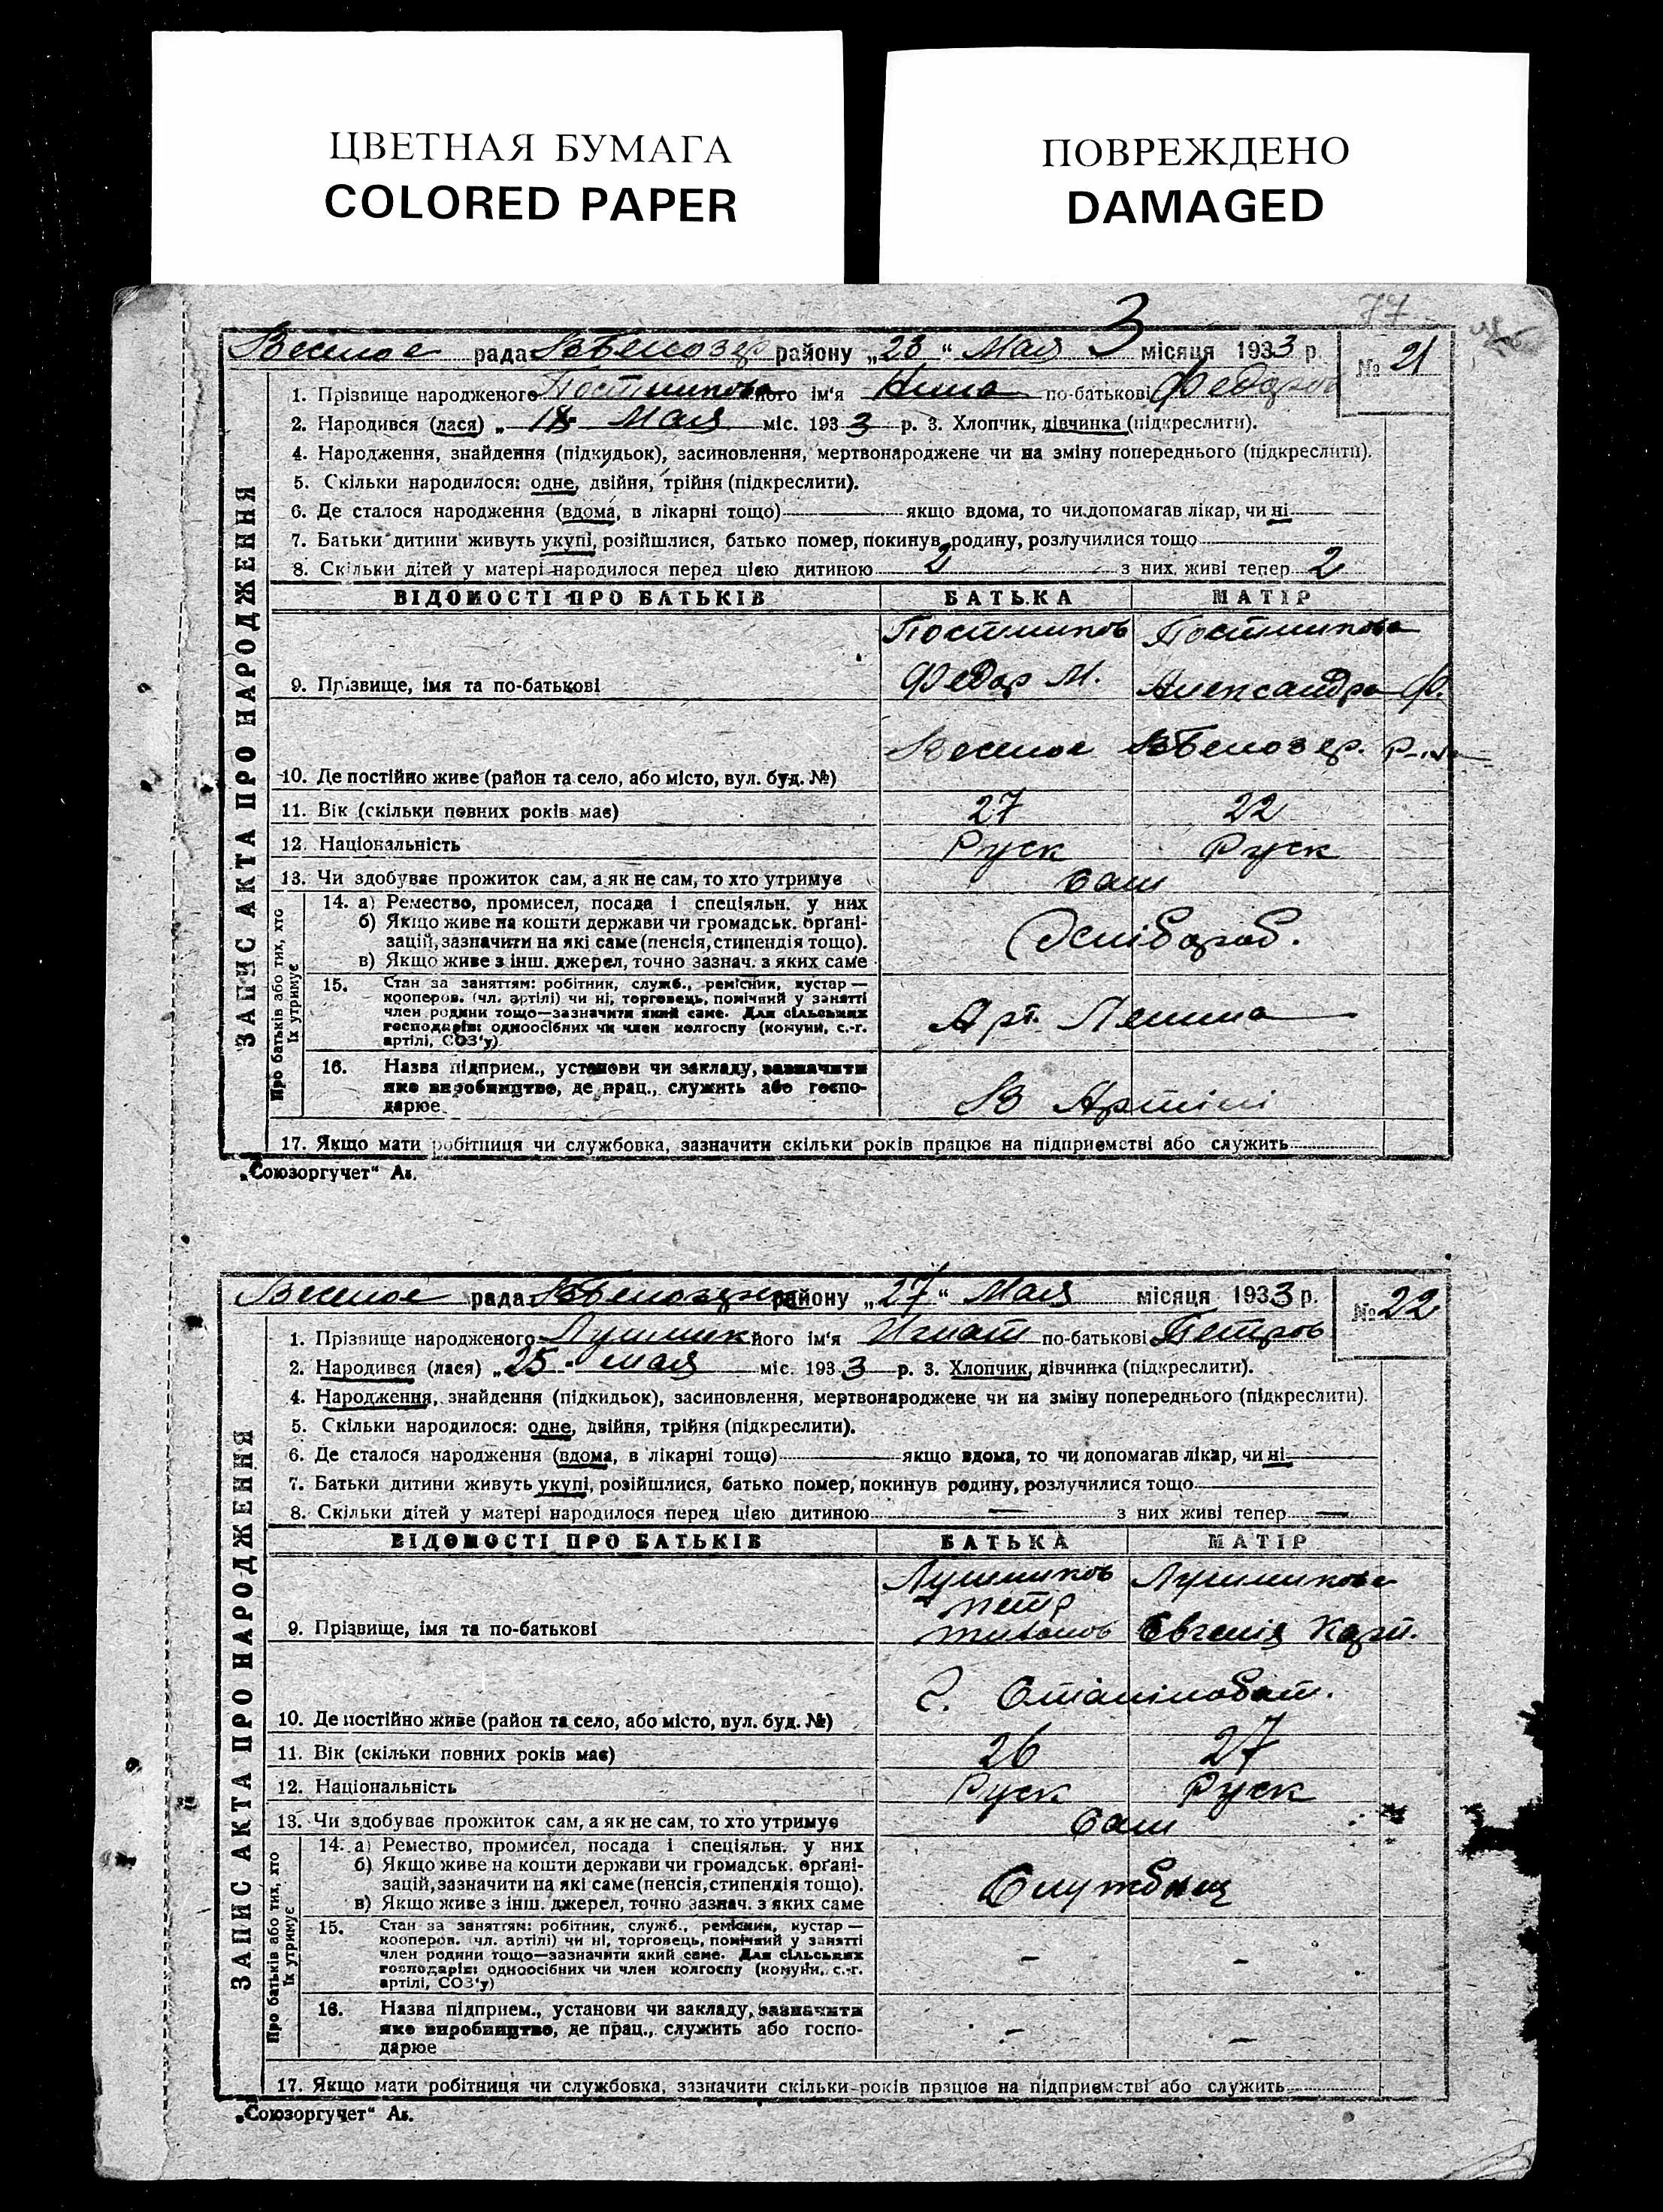 ЦВЕТНАЯ БУМАГА
COLORED PAPER
ПОВРЕЖДЕНО
DAMAGED
77
3
Веселое рада району „23“ Мая місяця 1933 р. № 21
1. Прізвище народженого Постникова його ім'я Нина по-батькові Федоров
2. Народився (лася) „ Мая міс. 1933 р. 3. Хлопчик, дівчинка (підкреслити).
4. Народження, знайдення (підкидьок), засиновлення, мертвонароджене чи на зміну попереднього (підкреслити).
5. Скільки народилося: одне, двійня, трійня (підкреслити).
6. Де сталося народження (вдома, в лікарні тощо) якщо вдома, то чи допомагав лікар, чи ні
7. Батьки дитини живуть укупі, розійшлися, батько помер, покинув родину, розлучилися тощо
8. Скільки дітей у матері народилося перед цією дитиною 2 з них живі тепер 2
ВІДОМОСТІ ПРО БАТЬКІВ БАТЬКА МАТІР
Постников Постникова
9. Прізвище, імя та по-батькові Федор М. Александра Ф.
Веселое В Белозер. р-на
10. Де постійно живе (район та село, або місто, вул. буд. №)
11. Вік (скільки повних років має) 27 22
12. Національність Руск Руск
13. Чи здобуває прожиток сам, а як не сам, то хто утримує сам
14. а) Ремество, промисел, посада і спеціяльн. у них
б) Якщо живе на кошти держави чи громадськ. органі-
зацій, зазначити на які саме (пенсія, стипендія тощо).
в) Якщо живе з інш. джерел, точно зазнач. з яких саме
15. Стан за заняттям: робітник, служб., ремісник, кустар —
кооперов. (чл. артілі) чи ні, торговець, помічний у занятті
член родини тощо—зазначити який саме. Для сільських
господарів: одноосібних чи член колгоспу (комуни, с.-г.
артілі, СОЗ'у)
Арт. Ленина
16. Назва підприєм., установи чи закладу, зазначити
яке виробництво, де прац., служить або госпо-
дарює
В Артілі
17. Якщо мати робітниця чи службовка, зазначити скільки років працює на підприємстві або служить
ЗАПИС АКТА ПРО НАРОДЖЕННЯ
Про батьків або тих, хто
їх утримує
„Союзоргучет“ Аг.
Веселое рада району „27“ Мая місяця 1933 р. № 22
1. Прізвище народженого його ім'я Игнат по-батькові Петров
2. Народився (лася) „25“ мая міс. 1933 р. 3. Хлопчик, дівчинка (підкреслити).
4. Народження, знайдення (підкидьок), засиновлення, мертвонароджене чи на зміну попереднього (підкреслити).
5. Скільки народилося: одне, двійня, трійня (підкреслити).
6. Де сталося народження (вдома, в лікарні тощо) якщо вдома, то чи допомагав лікар, чи ні
7. Батьки дитини живуть укупі, розійшлися, батько помер, покинув родину, розлучилися тощо
8. Скільки дітей у матері народилося перед цією дитиною — з них живі тепер —
ВІДОМОСТІ ПРО БАТЬКІВ БАТЬКА МАТІР
Лушников Лушникова
Петр
9. Прізвище, імя та по-батькові Евгенія Карп.
10. Де постійно живе (район та село, або місто, вул. буд. №)
11. Вік (скільки повних років має) 26 27
12. Національність Руск Руск
13. Чи здобуває прожиток сам, а як не сам, то хто утримує сам
14. а) Ремество, промисел, посада і спеціяльн. у них
б) Якщо живе на кошти держави чи громадськ. органі-
зацій, зазначити на які саме (пенсія, стипендія тощо).
в) Якщо живе з інш. джерел, точно зазнач. з яких саме
15. Стан за заняттям: робітник, служб., ремісник, кустар —
кооперов. (чл. артілі) чи ні, торговець, помічний у занятті
член родини тощо—зазначити який саме. Для сільських
господарів: одноосібних чи член колгоспу (комуни, с.-г.
артілі, СОЗ'у)
- -
16. Назва підприєм., установи чи закладу, зазначити
яке виробництво, де прац., служить або госпо-
дарює
- -
17. Якщо мати робітниця чи службовка, зазначити скільки років працює на підприємстві або служить
ЗАПИС АКТА ПРО НАРОДЖЕННЯ
Про батьків або тих, хто
їх утримує
„Союзоргучет“ Аг.